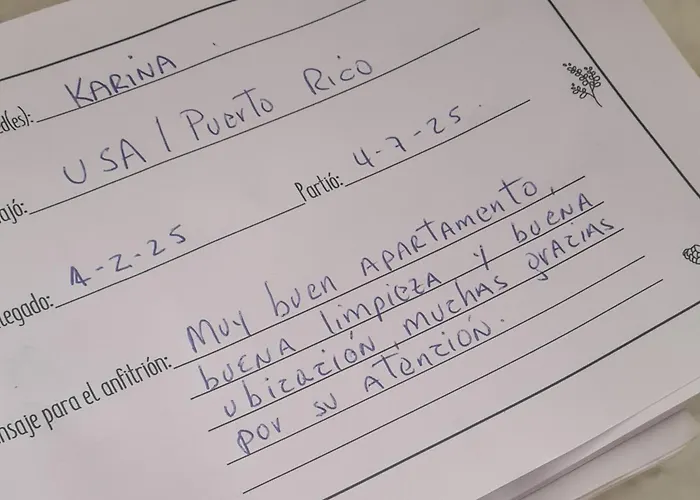 d(es): KARINA
ajó: USA / Puerto Rico
legado: 4-2-25 Partió: 4-7-25.
nsaje para el anfitrión: Muy buen APARTAMENTO,
buENA limpieza y buENA
ubicación, muchas gracias
por su Atención.